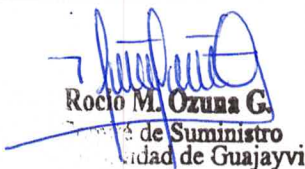 Rocío M. Ozuna G.
de Suministro
de Guajayvi